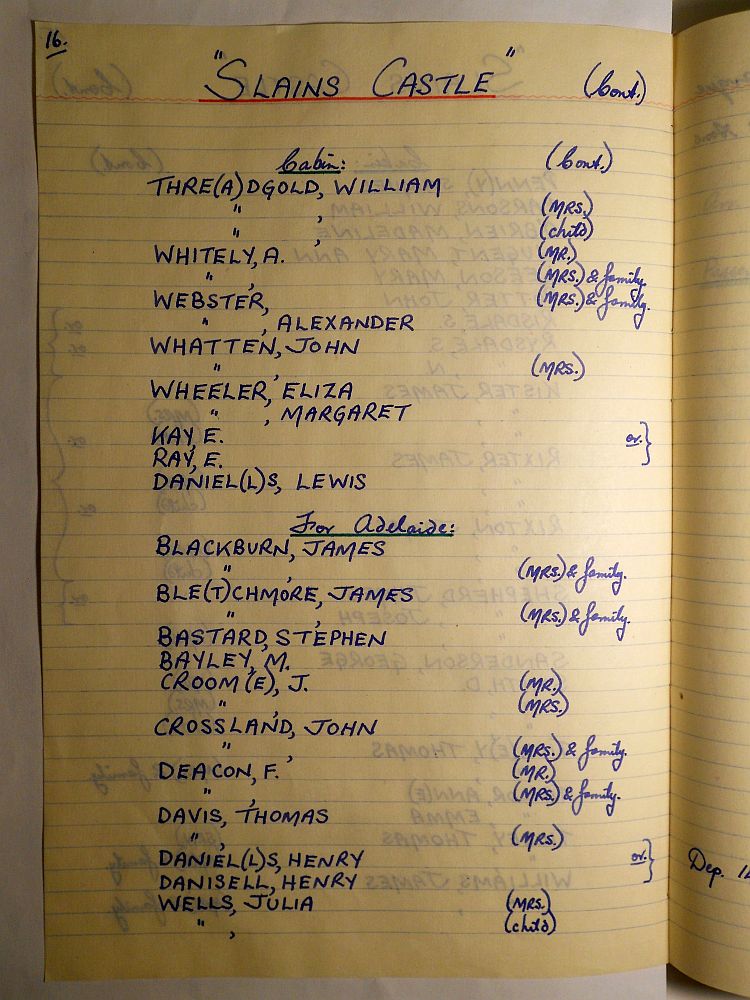 16.
"SLAINS CASTLE" (Cont.)
Cabin: (Cont.)
THRE(A)DGOLD, WILLIAM
" , (MRS.)
" , (child)
WHITELY, A. (MR.)
" , (MRS.) & family.
WEBSTER, (MRS.) & family.
" , ALEXANDER
WHATTEN, JOHN
" , (MRS.)
WHEELER, ELIZA
" , MARGARET
KAY, E. or. }
RAY, E.
DANIEL(L)S, LEWIS
For Adelaide:
BLACKBURN, JAMES
" , (MRS.) & family.
BLE(T)CHMORE, JAMES
" , (MRS.) & family.
BASTARD, STEPHEN
BAYLEY, M.
CROOM(E), J. (MR.)
" , (MRS.)
CROSSLAND, JOHN
" , (MRS.) & family.
DEACON, F. (MR.)
" , (MRS.) & family.
DAVIS, THOMAS
" , (MRS.)
DANIEL(L)S, HENRY or. }
DANISELL, HENRY
WELLS, JULIA (MRS.)
" , (child)
Dep.